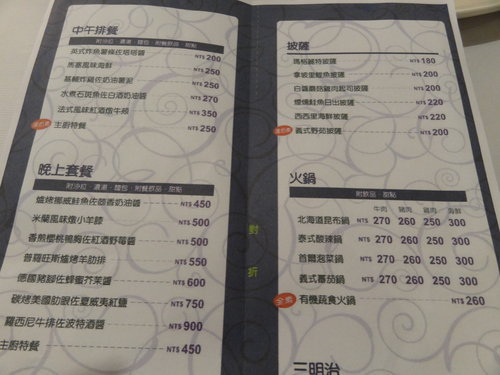 中午排餐
附沙拉、濃湯、麵包 附餐飲品 甜點
英式炸魚薯條佐塔塔醬 NT$ 200
馬塞風味海鮮 NT$ 250
基輔炸雞佐奶油薯泥 NT$ 250
水煮石斑魚佐白酒奶油醬 NT$ 270
法式風味紅酒燉牛頰 NT$ 350
主廚特餐 NT$ 250
晚上套餐
附沙拉、濃湯、麵包 附餐飲品、甜點
爐烤挪威鮭魚佐茴香奶油醬 NT$ 450
米蘭風味燉小羊膝 NT$ 500
香煎櫻桃鴨胸佐紅酒野莓醬 NT$ 500
普羅旺斯爐烤羊肋排 NT$ 550
德國豬腳佐蜂蜜芥茉醬 NT$ 600
碳烤美國肋眼佐夏威夷紅鹽 NT$ 750
羅西尼牛排佐波特酒醬 NT$ 900
主廚特餐 NT$ 450
對
折
披薩
瑪格麗特披薩 NT$ 180
拿坡里鯷魚披薩 NT$ 200
白醬蘑菇雞肉起司披薩 NT$ 200
煙燻鮭魚日出披薩 NT$ 220
西西里海鮮披薩 NT$ 220
義式野菇披薩 NT$ 200
火鍋
附飲品 甜點
牛肉 豬肉 雞肉 海鮮
北海道昆布鍋 NT$ 270 260 250 300
泰式酸辣鍋 NT$ 270 260 250 300
首爾泡菜鍋 NT$ 270 260 250 300
義式蕃茄鍋 NT$ 270 260 250 300
全素 有機蔬食火鍋 NT$ 260
三明治